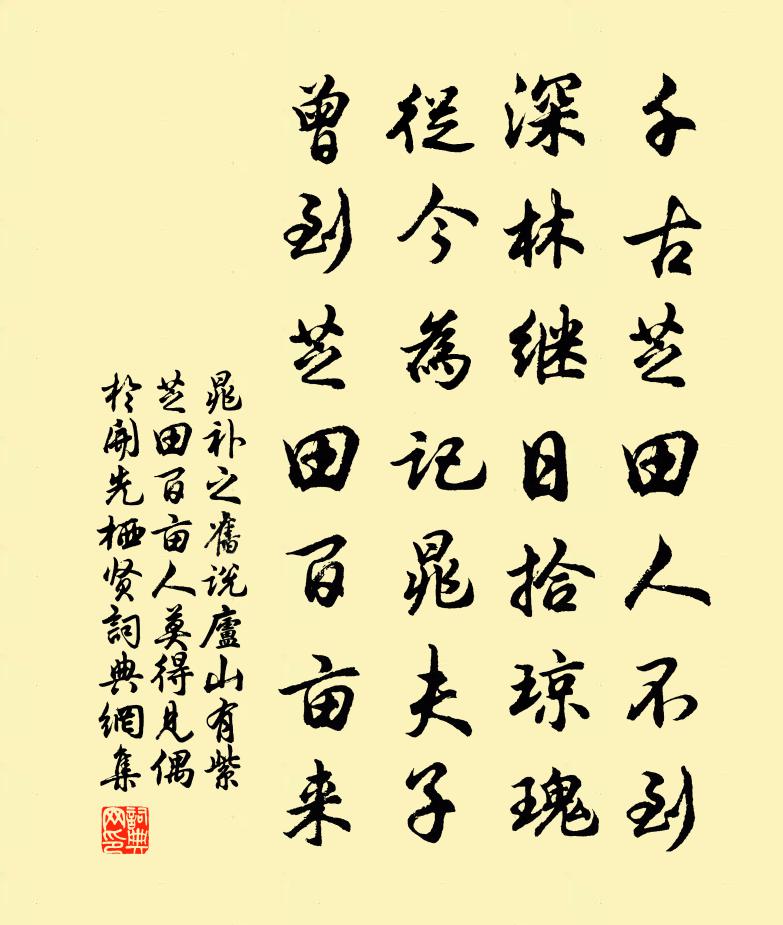 千古芝田人不到
深林继日拾琼瑰
從今為記晁夫子
曾到芝田百亩来
晁补之舊说廬山有紫
芝田百亩人莫得見偶
於開先栖贤詞典網集
詞典网印